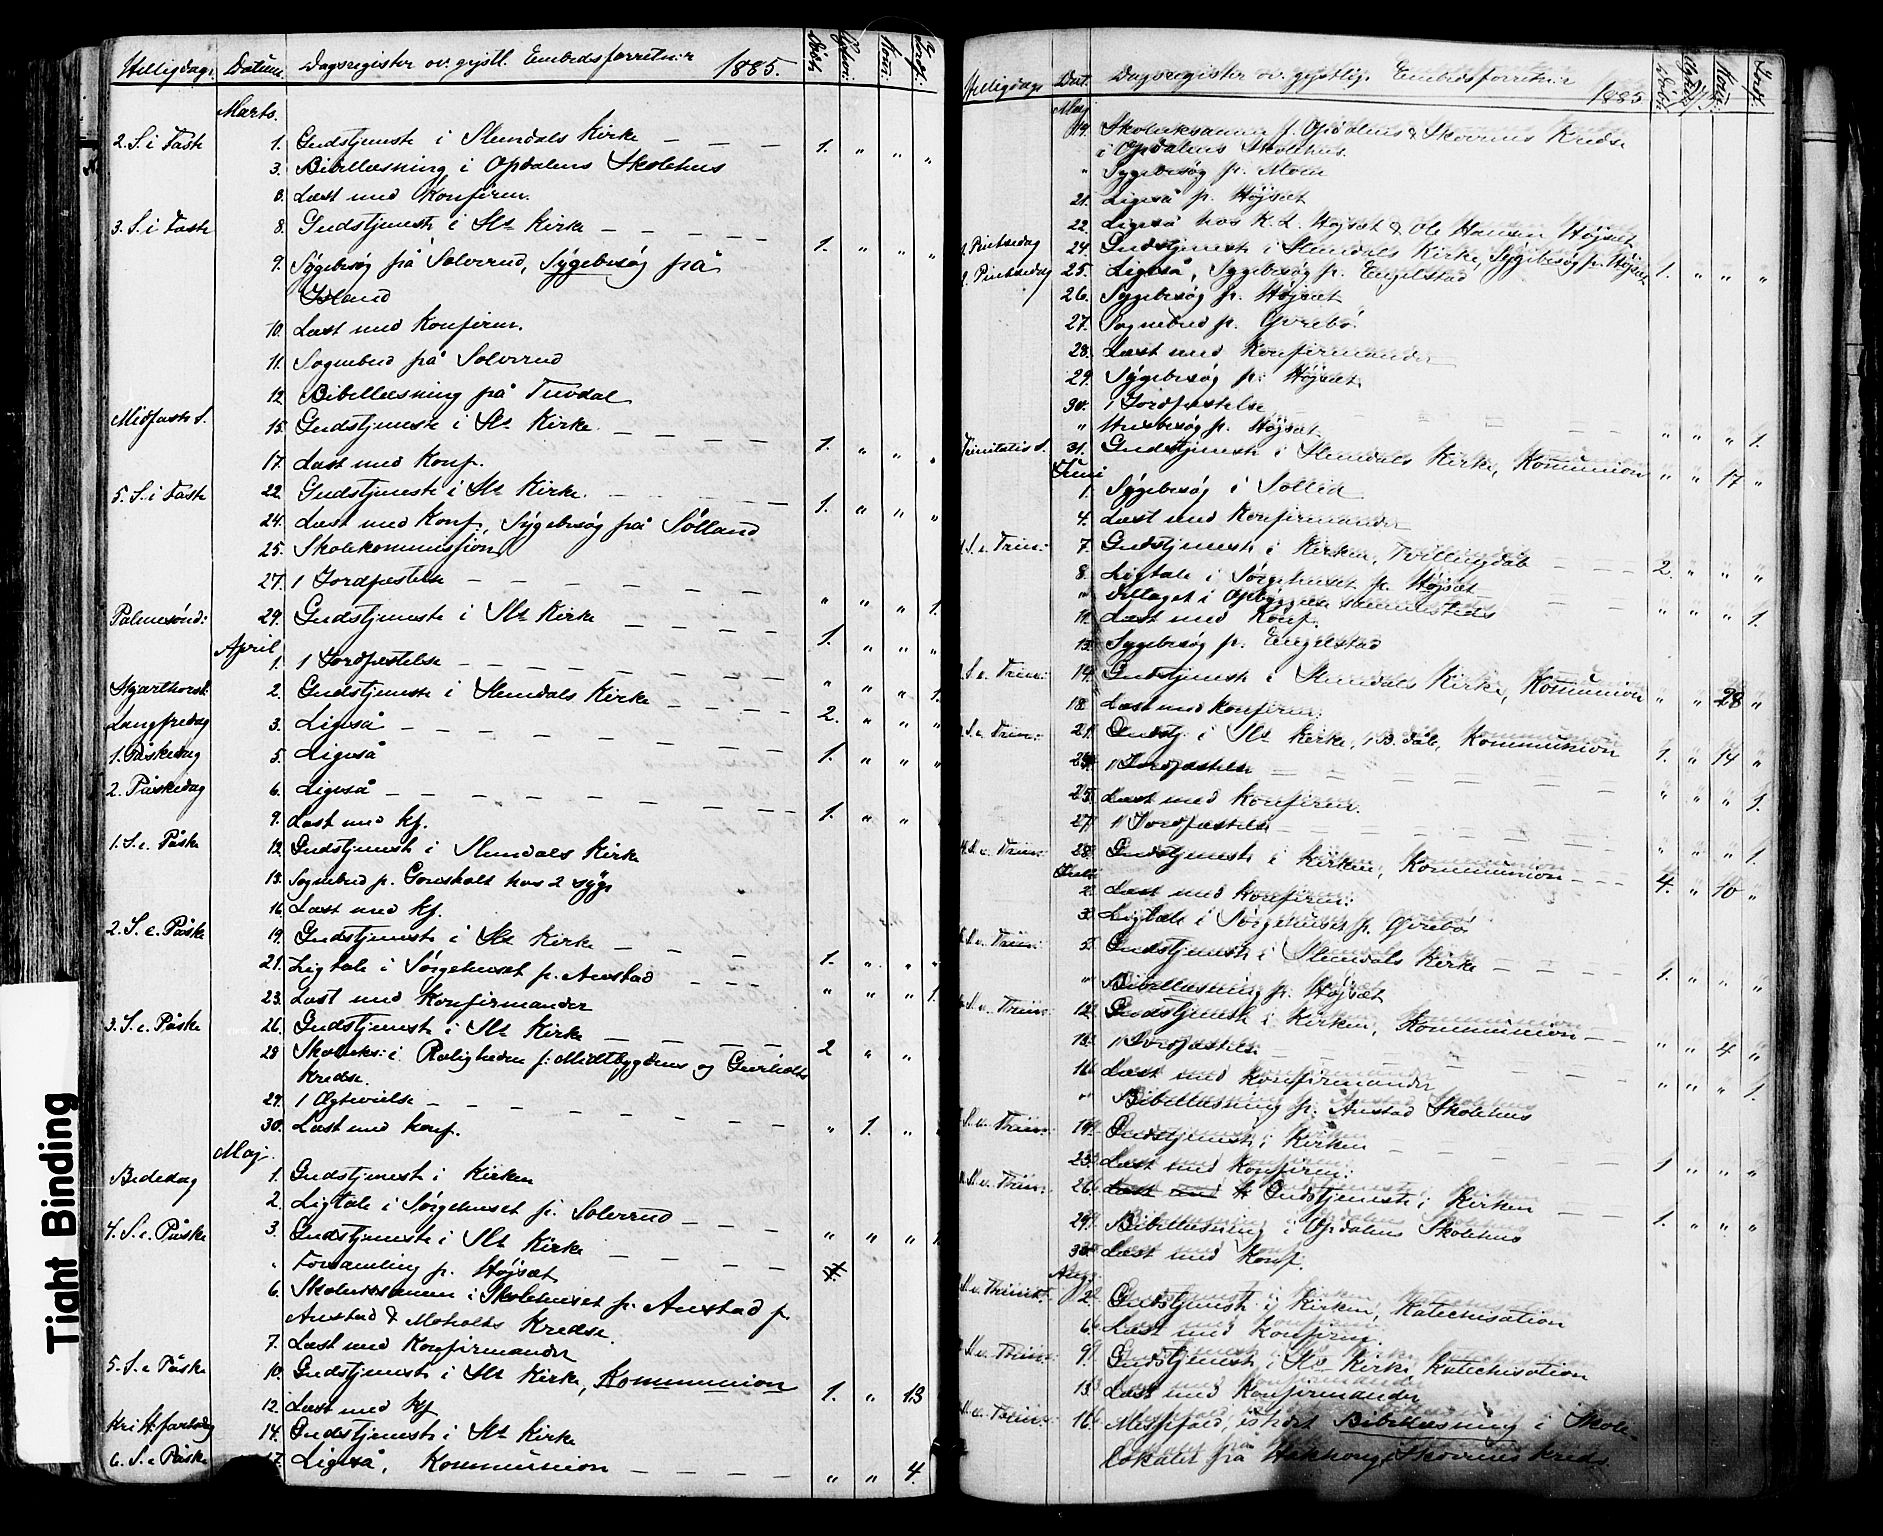 Helligdag. Datum. Dagsregister ov. gejstl. Embedsforretn:r 1885. Døbte.
Marts.
2. S. i Faste 1. Gudstjeneste i Slemdals Kirke — — — 1. " " "
3. Bibellæsning i Opdalens Skolehus
8. Læst med Konfirm.
3. S. i Faste 8. Gudstjeneste i Sls Kirke — — — — 1. " " "
9. Sygebesøg på Solverud, Sygebesøg på
Island
10. Læst med Konfirm.
11. Sognebud på Solverud
12. Bibellæsning på Tuvdal
Midfaste S. 15. Gudstjeneste i Sls Kirke — — — — 1. " " "
17. Læst med Konf.
5. S. i Faste 22. Gudstjeneste i Sls Kirke — — — — 1. " " "
24. Læst med Konf., Sygebesøg på Sølland
25. Skolekommission
27. 1 Jordfæstelse — — — — " " " 1.
Palmesønd: 29. Gudstjeneste i Sls Kirke — — — 1. " " "
April
1. 1 Jordfæstelse — — — — " " " 1.
Skjærthorsd: 2. Gudstjeneste i Slemdals Kirke — — — 2. " " "
Langfredag 3. Ligeså — — — — 1. " " "
1. Påskedag 5. Ligeså
2. Påskedag 6. Ligeså — — — — 1. " "
9. Læst med kf.
1. S. e. Påske 12. Gudstjeneste i Slemdals Kirke
13. Sognebud p. Goresholt hos 2 syge
16. Læst med kf.
2. S. e. Påske 19. Gudstjeneste i Sls Kirke — — — 1. " " "
21. Ligtale i Sørgehuset p. Anstad — — — " " " 1.
23. Læst med Konfirmander
3. S. e. Påske 26. Gudstjeneste i Sls Kirke — — — 2 " "
28 Skoleeks: i Roligheden f: Midtbygdens og
Kredse.
29. 1 Ægtevielse — — — — " 1. "
30. Læst med konf.
Maj.
Bededag 1. Gudstjeneste i Kirken
2. Ligtale i Sørgehuset p. Solverud — — — " " "
4. S. e. Påske 3. Gudstjeneste i Sls Kirke — — — —
" Forsamling p. Højsæt
6. Skoleeksamen i Skolehuset p. Anstad f.
Anstad & Moholts Kredse.
7. Læst med Konfirmander
5. S. e. Påske 10. Gudstjeneste i Sls Kirke, Kommunion 1. " 13
12. Læst med kf
Kristi fartsdag 14. Gudstjeneste i Sls Kirke
6. S. e Påske 17. Ligeså, Kommunion — — — — " " 4.
Helligdage Dat. Dagsregister ov. gejstlige Embedsforretn:r 1885
Maj
19. Skoleeksamen f. Opdalens & Skovenes Kredse
i Opdalens Skolehus.
" Sygebesøg p. Moen
21. Ligeså p. Højsæt
22. Ligeså hos K. L. Højsæt & Ole Hansen Højsæt
1. Pintsedag 24. Gudstjeneste i Slemdals Kirke, Sygebesøg p. Højsæt 1. " " "
2. Pintsedag 25. Ligeså, Sygebesøg p. Engelstad
26. Sygebesøg p. Højsæt
27. Sognebud p. Gvrebø.
28. Læst med Konfirmander
29. Sygebesøg p. Højsæt
30. 1 Jordfæstelse — — — — " " " 1.
" Husbesøg p. Højsæt
Trinitatis S. 31. Gudstjeneste i Slemdals Kirke, Kommunion " " 17 "
Juni
1. Sygebesøg i Sollid
4. Læst med Konfirmander
1 S. e. Trin: 7. Gudstjeneste i Kirken, Tvillingdåb — — — 2. " " "
8. Ligtale i Sørgehuset p. Højsæt — — — " " " 1.
" Deltaget i Opbyggelse sammesteds
11. Læst med Konf.
13. Sygebesøg p. Engelstad
2. S. e. Trin: 14. Gudstjeneste i Slemdals Kirke, Kommunion " " 28 "
18. Læst med Konfirm.
3. S. e. Trin: 21. Gudstj. i Sls Kirke, 1 B. dåb, Kommunion 1. " 14 "
1 Jordfæstelse — — — — " " " 1.
25. Læst med Konfirm.
27. 1 Jordfæstelse — — — — " " " 1.
4. S. e. Trin: 28. Gudstjeneste i Kirken, Kommunion — — — 4. " 10 "
Juli
2. Læst med Konfirm:
3. Ligtale i Sørgehuset p. Gvrebø
5. S. e. Trin: 5. Gudstjeneste i Slemdals Kirke — — — 1. " " "
" Bibellæsning p. Højsæt
6. S. e. Trin: 12. Gudstjeneste i Kirken, Kommunion — — " " 4 "
13. 1 Jordfæstelse — — — — " " " 1.
16. Læst med Konfirmander
" Bibellæsning p. Anstad Skolehus
7. S. e. Trin: 19. Gudstjeneste i Kirken — — — 1 " " "
23. Læst med Konfirm:
8. S. e. Trin: 26. Læst med Gudstjeneste i Kirken — — — 1. " " "
29. Bibellæsning i Opdalens Skolehus
30. Læst med Konf.
Aug.
S. e. Trinit. 2. Gudstjeneste i Kirken, Katechisation
6. Læst med Konfirm.
S. e. Trin: 9. Gudstjeneste i Sls Kirke, Katechisation
13. Læst med Konfirmander
S. e. Trin: 16. Messefald, istedet Bibellæsning i Skole-
lokalet på Skovenes Kreds.
Tight Binding